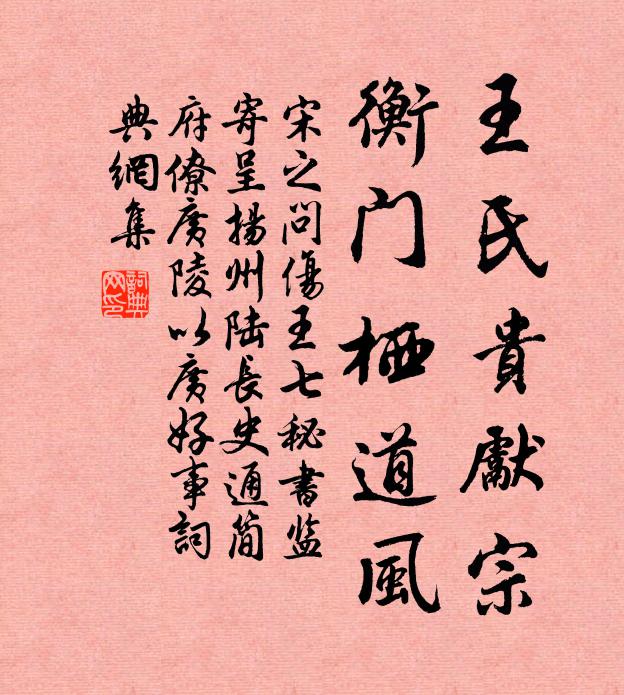 王氏貴獻宗
衡门栖道風
宋之问傷王七秘書监
寄呈揚州陆長史通简
府僚廣陵以廣好事詞
典網集
詞典网印